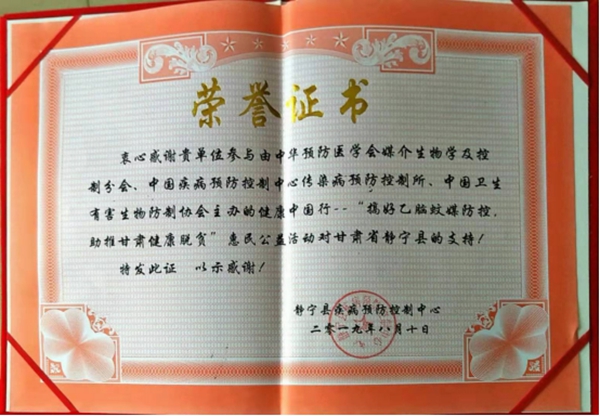 荣誉证书
衷心感谢贵单位参与由中华预防医学会媒介生物学及控
制分会、中国疾病预防控制中心传染病预防控制所、中国卫生
有害生物防制协会主办的健康中国行--“搞好乙脑蚊媒防控，
助推甘肃健康脱贫”惠民公益活动对甘肃省静宁县的支持！
特发此证 以示感谢！
静宁县疾病预防控制中心
二零一九年八月十日